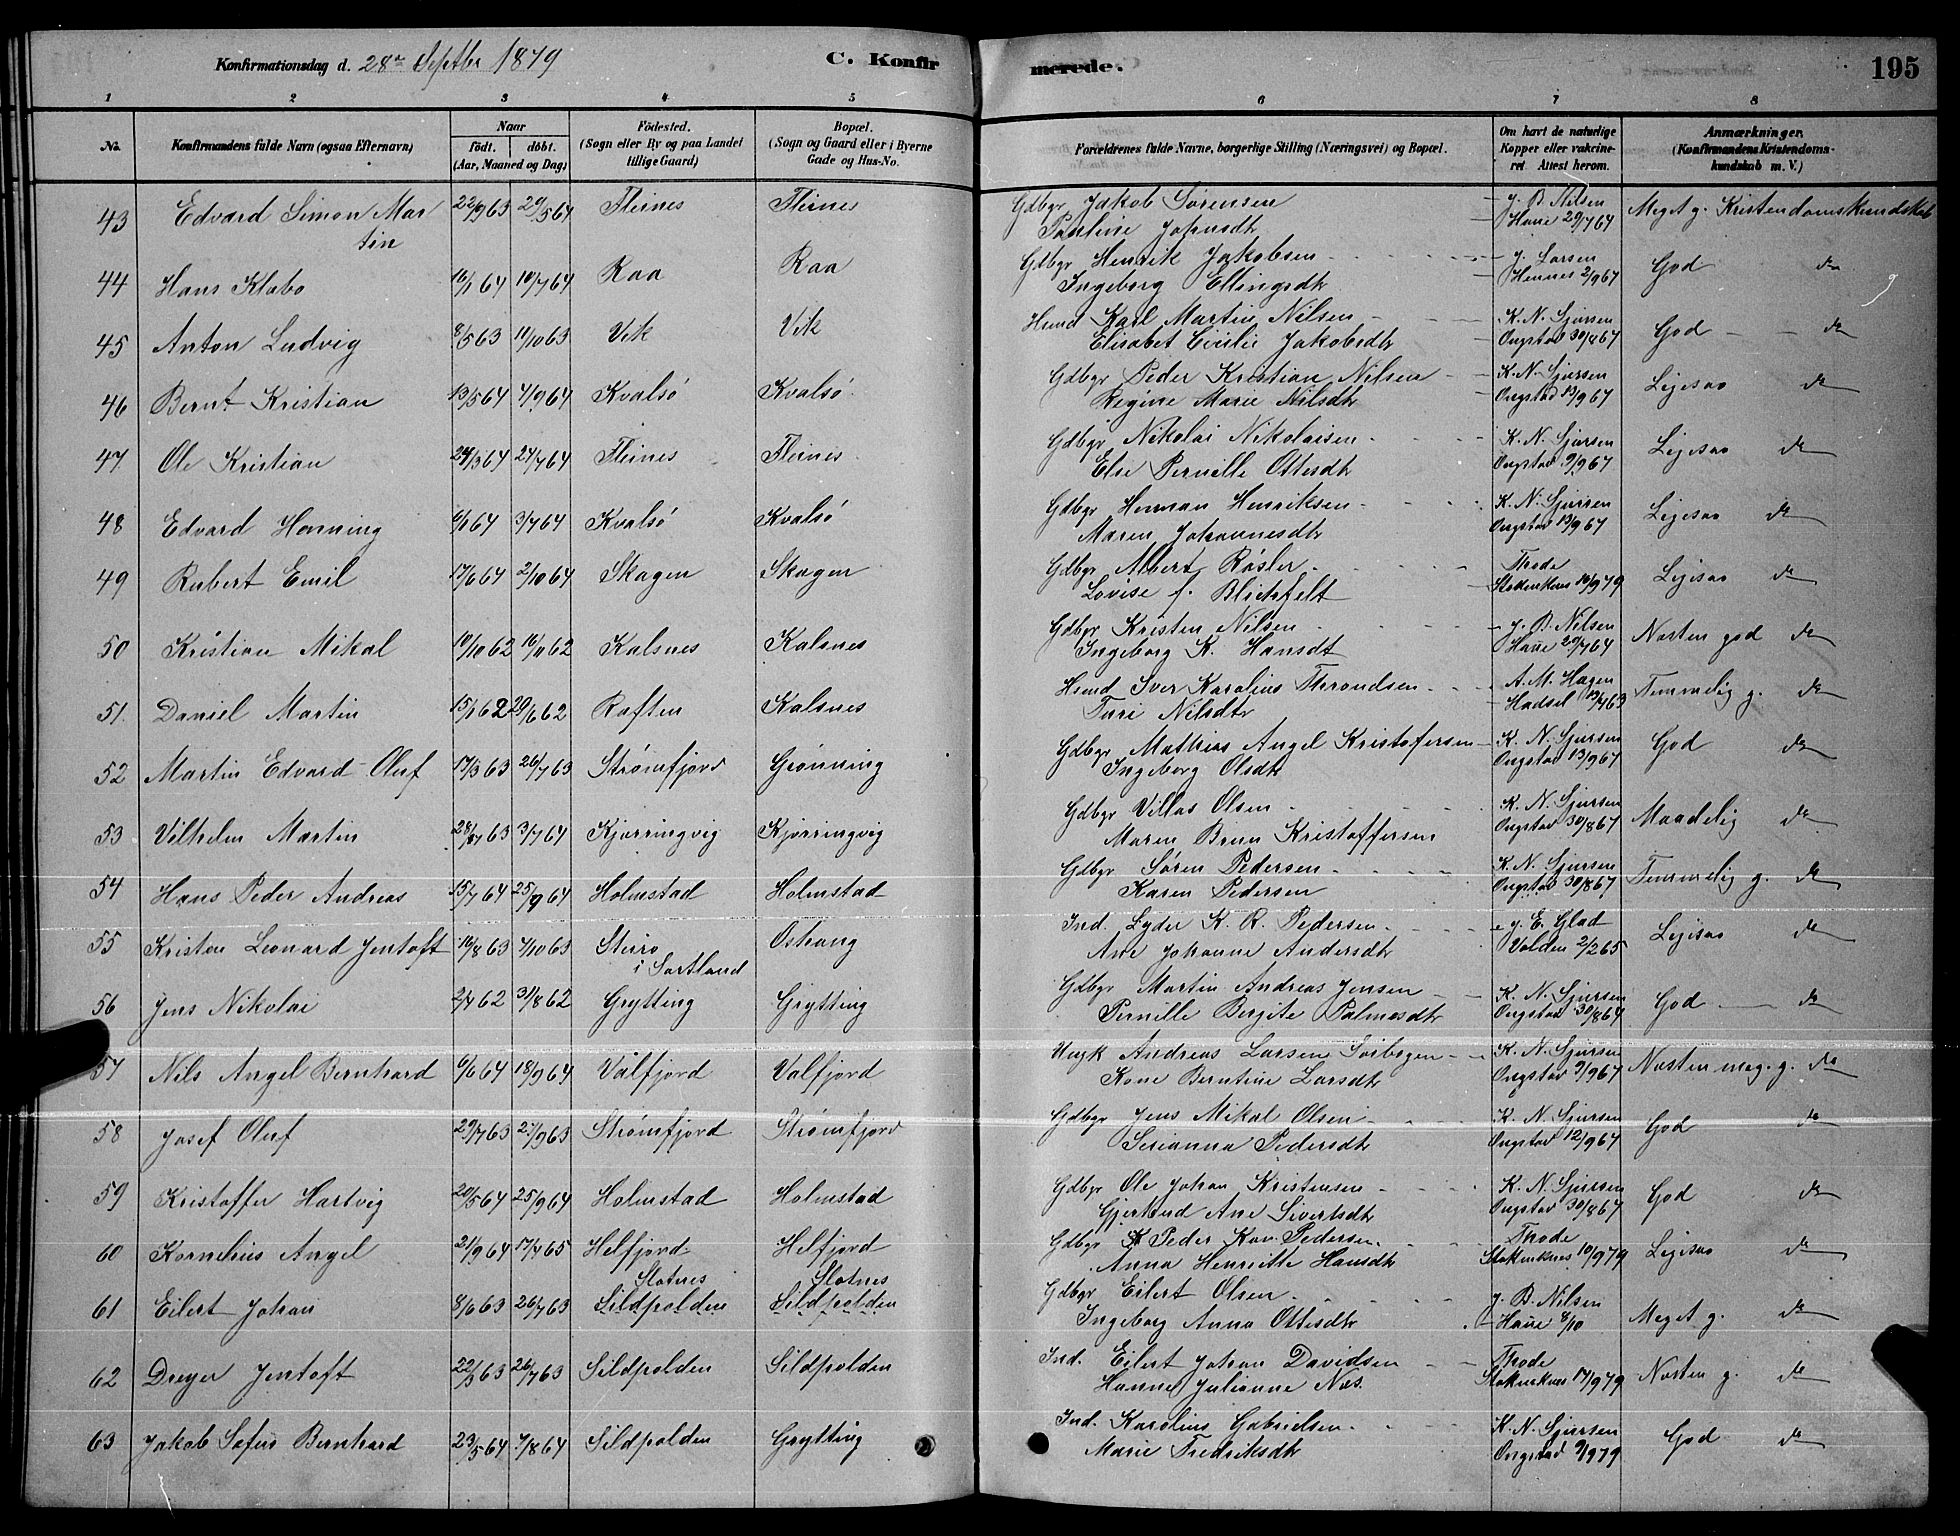 Konfirmationsdag d. 28de Septbr 1879
C. Konfirmerede.
195
1 2 3 4 5 6 7 8
No. Konfirmandens fulde Navn (ogsaa Efternavn) Naar födt. döbt. (Aar, Maaned og Dag) Födested. (Sogn eller By og paa Landet tillige Gaard) Bopæl. (Sogn og Gaard eller i Byerne Gade og Hus-No.) Forældrenes fulde Navne, borgerlige Stilling (Næringsvei) og Bopæl. Om havt de naturlige Kopper eller vakcineret Attest herom. Anmærkninger. (Konfirmandens Kristendomskundskab m. V.)
43 Edvard Simon Martin 22/9 63 29/5 64 Fleines Fleines Gdbgr Jakob Sörensen J. B. Nilsen
Pauline Johnsdtr 29/7 64 Meget g. Kristendomskundskab
44 Hans Klabo 16/1 64 10/7 64 Raa Raa Gdbgr Henrik Jakobsen J. Larsen
Ingeborg Ellingsdtr Hennes 2/9 67 God do
45 Anton Ludvig 8/5 63 11/10 63 Vik Vik Hsmd Karl Martin Nilsen K. N. Sjursen
Elisabet Cicilie Jakobsdtr Ongstad 30/8 67 God do
46 Bernt Kristian 13/5 64 4/9 64 Kvalsö Kvalsö Gdbgr Peder Kristian Nilsen K. N. Sjursen
Regine Marie Nilsdtr Ongstad 13/9 67 Ligesaa do
47 Ole Kristian 24/3 64 24/7 64 Fleines Fleines Gdbgr Nikolai Nikolaisen K. N. Sjursen
Else Pernille Ottesdtr Ongstad 9/9 67 Ligesaa do
48 Edvard Henning 6/1 64 3/7 64 Kvalsö Kvalsö Gdbgr Herman Henriksen K. N. Sjursen
Maren Johannesdtr Ongstad 13/9 67 Ligesaa do
49 Robert Emil 17/6 64 2/10 64 Skagen Skagen Gdbgr Albert Røsler Thode
Lovise f. Blichfelt Stokmknes 10/9 79 Ligesaa do
50 Kristian Mikal 10/10 62 16/11 62 Kalsnes Kalsnes Gdbgr Kristen Nilsen J. B. Nilsen
Ingeborg K. Hansdt 29/7 64 Næsten god do
51. Daniel Martin 15/1 62 29/6 62 Raften Kalsnes Hsmd Iver Karolius Throndsen A. M. Hagen
Turi Nilsdtr Hadsel 19/7 63 Temmelig g. do
52 Martin Edvard Oluf 17/3 63 26/7 63 Strømfjord Grønning Gdbgr Mathias Angel Kristofersen K. N. Sjursen
Ingeborg Olsdtr Ongstad 13/9 67 God do
53 Vilhelm Martin 28/7 63 3/7 64 Kjørringvig Kjørringvig Gdbgr Villas Olsen K. N. Sjursen
Maren Brun Kristoffersen Ongstad 30/8 67 Maadelig do
54 Hans Peder Andreas 15/7 64 25/9 64 Holmstad Holmstad Gdbgr Søren Pedersen K. N. Sjursen
Karen Pedersen Ongstad 30/8 67 Temmelig g. do
55 Kristen Leonard Jentoft 16/8 63 4/10 63 Stirro Oshaug Ind. Lyder K. R. Pedersen J. E. Glad
i Sortland Ane Johanne Andersdtr Valden 2/2 65 Ligesaa do
56 Jens Nikolai 2/7 62 31/8 62 Grytting Grytting Gdbgr Martin Andreas Jensen K. N. Sjursen
Pernille Bergite Palmesdtr Ongstad 30/8 64 God do
57 Nils Angel Bernhard 6/6 64 18/9 64 Valfjord Valfjord Ungk Andreas Larsen Seibogen K. N. Sjursen
Kone Berntine Larsdtr Ongstad 9/9 67 Næsten meg. g. do
58 Josef Oluf 29/7 63 27/9 63 Strømfjord Strømfjord Gdbgr Jens Mikal Olsen K. N. Sjursen
Serianna Pedersdtr Ongstad 12/9 67 God do
59 Kristoffer Hartvig 20/5 64 25/9 64 Holmstad Holmstad Gdbgr Ole Johan Kristensen K. N. Sjursen
Gjertrud Ane Sivertsdtr Ongstad 30/8 67 God do
60 Kornelius Angel 21/9 64 17/4 65 Helfjord Helfjord Gdbgr Peder Kav. Pedersen Thode
Slotnes Slotnes Anna Henriette Hansdtr Stokmknes 10/9 79 Ligesaa do
61 Eilert Johan 8/6 63 26/7 63 Sildpolden Sildpolden Gdbgr Eilert Olsen J. B. Nilsen
Ingeborg Anna Ottesdtr 8/10 Meget g. do
62 Dreyer Jentoft 22/3 63 26/7 63 Sildpolden Sildpolden Ind. Eilert Johan Davidsen Thode
Hanne Julianne Næs. Stokmknes 17/9 79 Næsten g. do
63 Jakob Sefeus Bernhard 23/5 64 7/8 64 Sildpolden Grytting Ind. Karolius Gabrielsen K. N. Sjursen
Marie Fredriksdtr Ongstad 9/9 79 God do